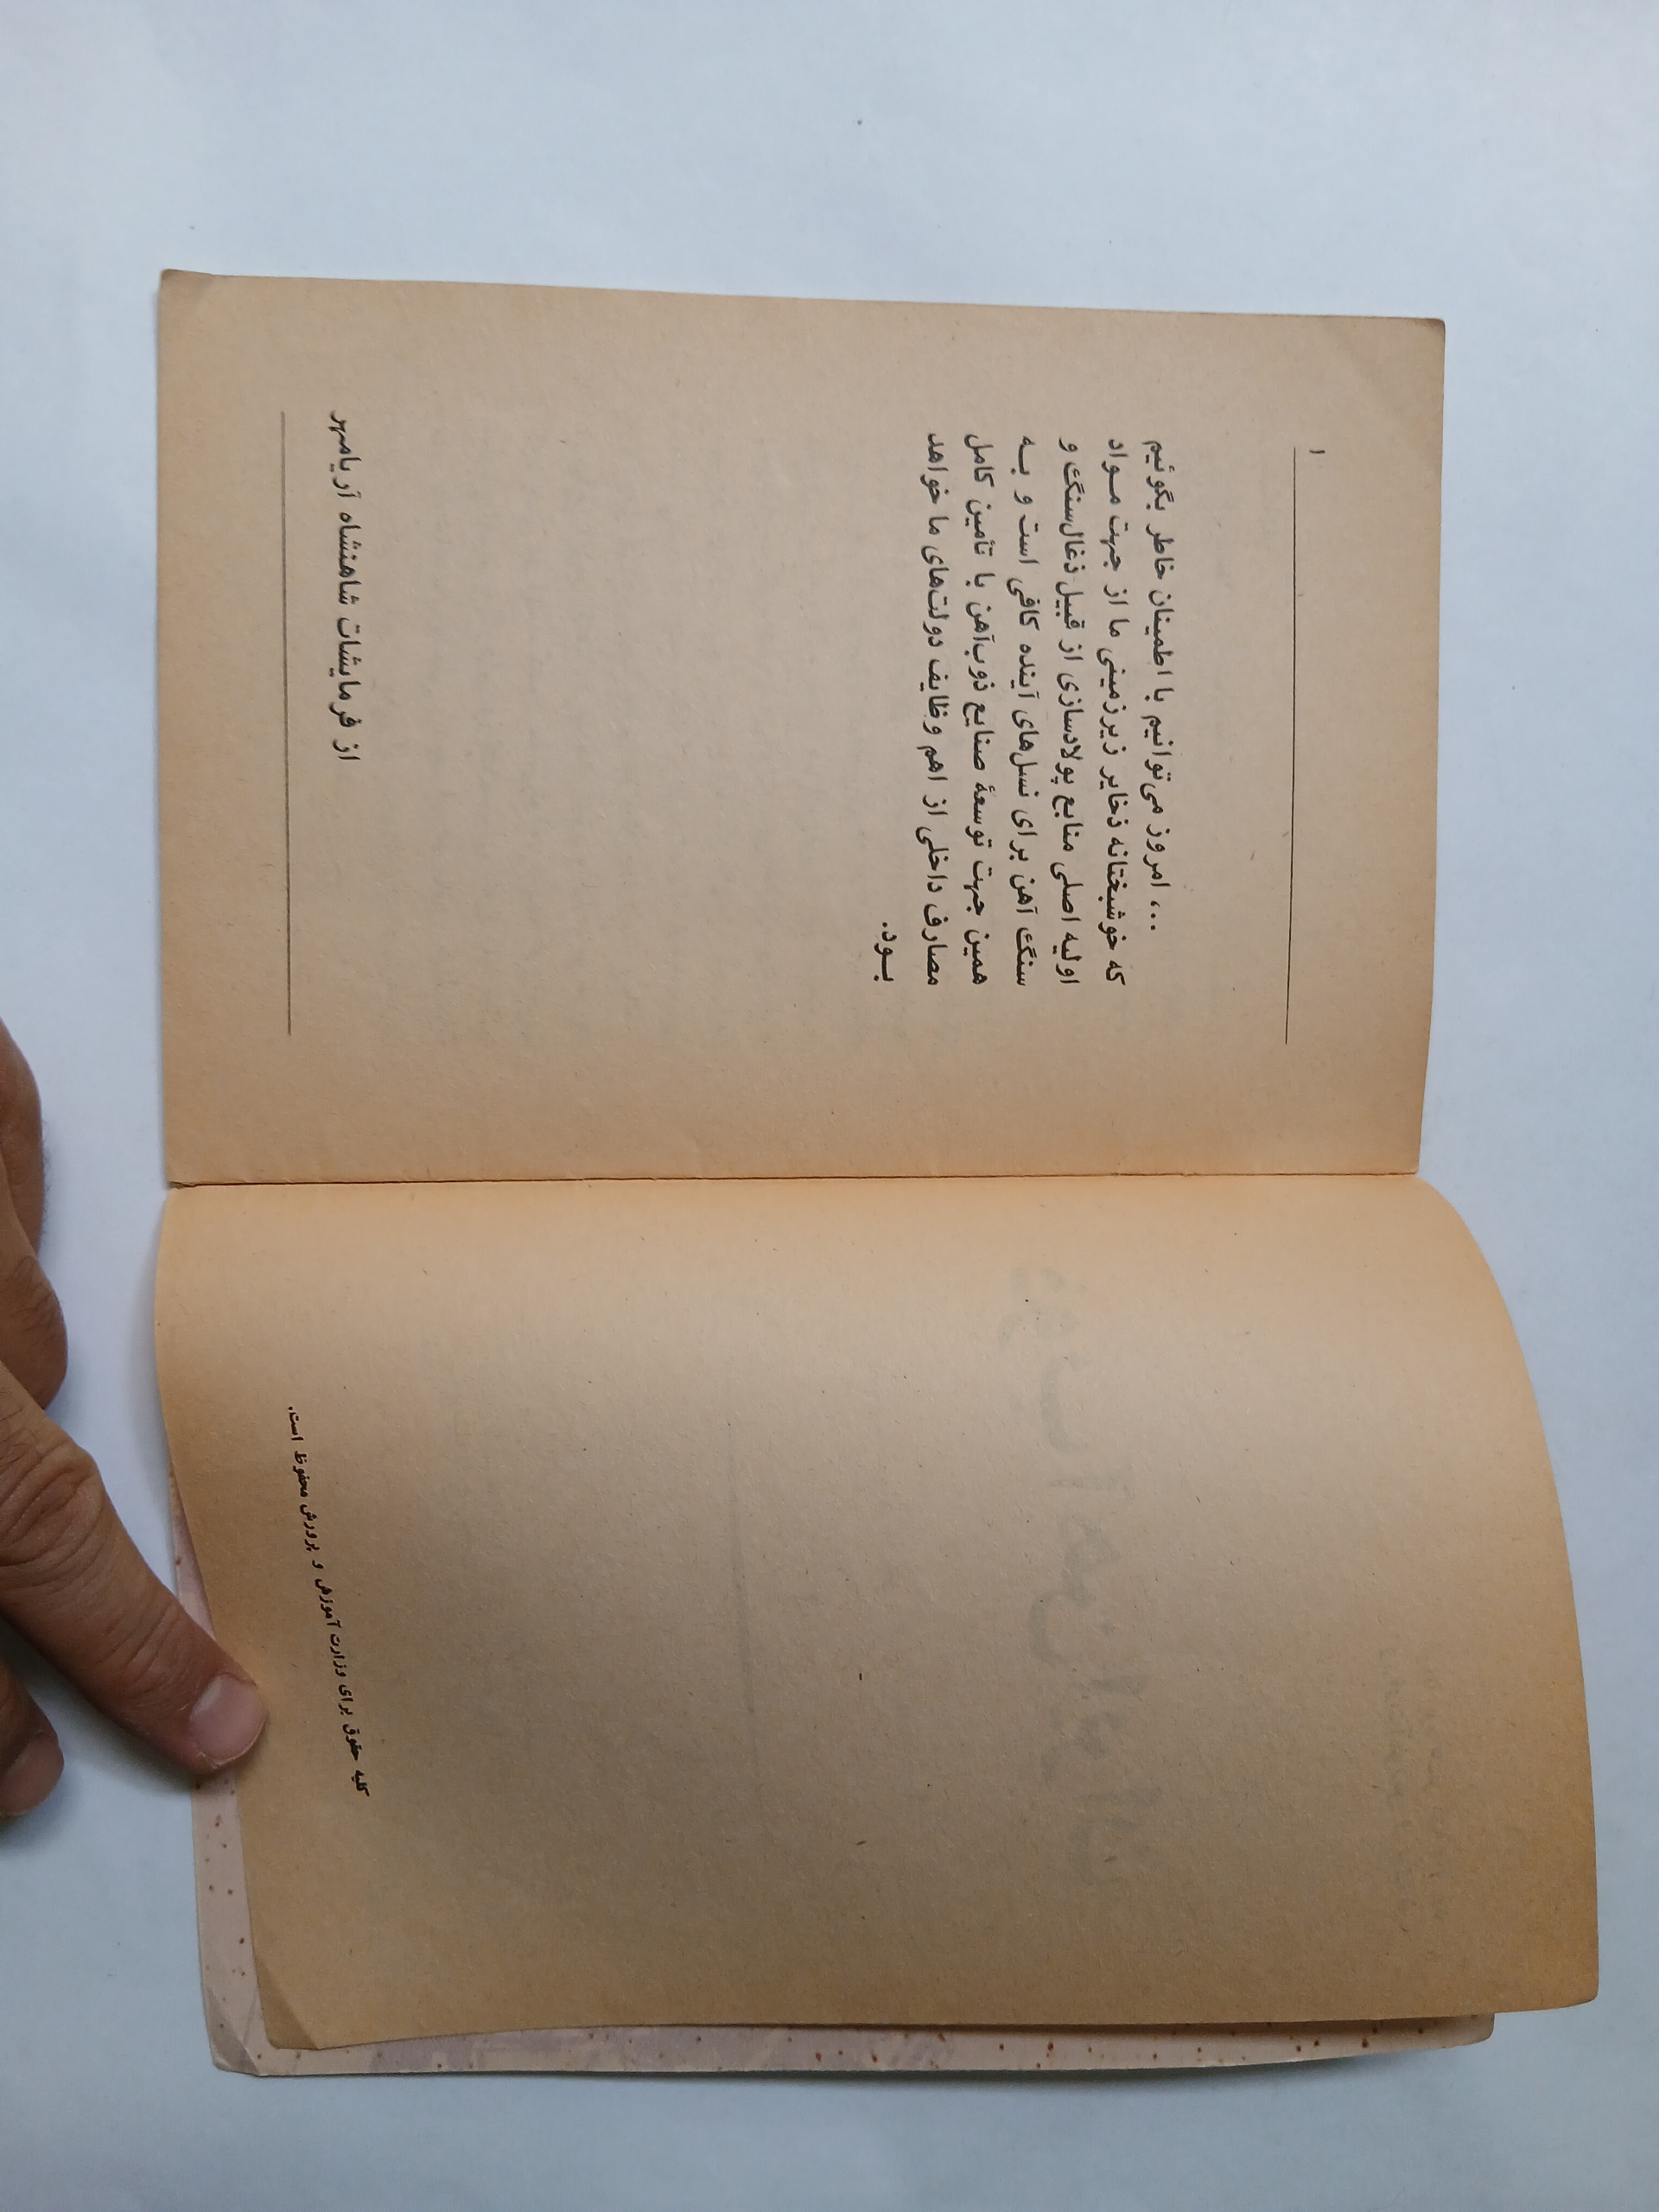 ۱
... امروز می‌توانیم با اطمینان خاطر بگوئیم
که خوشبختانه ذخایر زیرزمینی ما از جهت مواد
اولیه اصلی منابع پولادسازی از قبیل ذغال‌سنگ و
سنگ آهن برای نسل‌های آینده کافی است و به
همین جهت توسعهٔ صنایع ذوب‌آهن با تأمین کامل
مصارف داخلی از اهم وظایف دولت‌های ما خواهد
بود.
از فرمایشات شاهنشاه آریامهر
کلیه حقوق برای وزارت آموزش و پرورش محفوظ است.